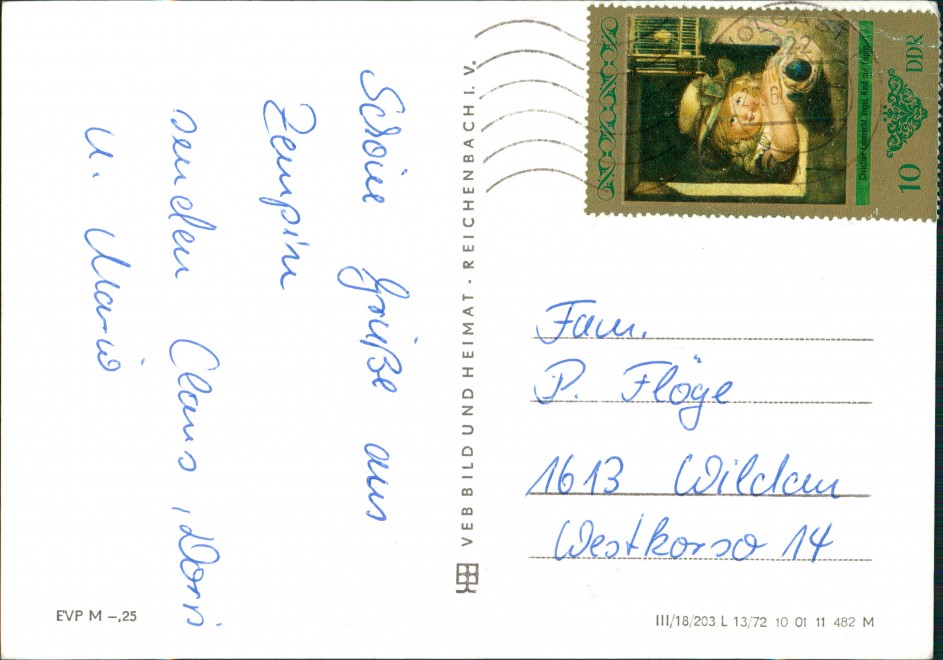 Schöne Grüße aus
Zempin
senden Claus, Doris
u. Mario
VEB BILD UND HEIMAT · REICHENBACH I. V.
DDR
10
Fam.
P. Flöge
1613 Wildau
Westkorso 14
EVP M –,25
III/18/203 L 13/72 10 01 11 482 M